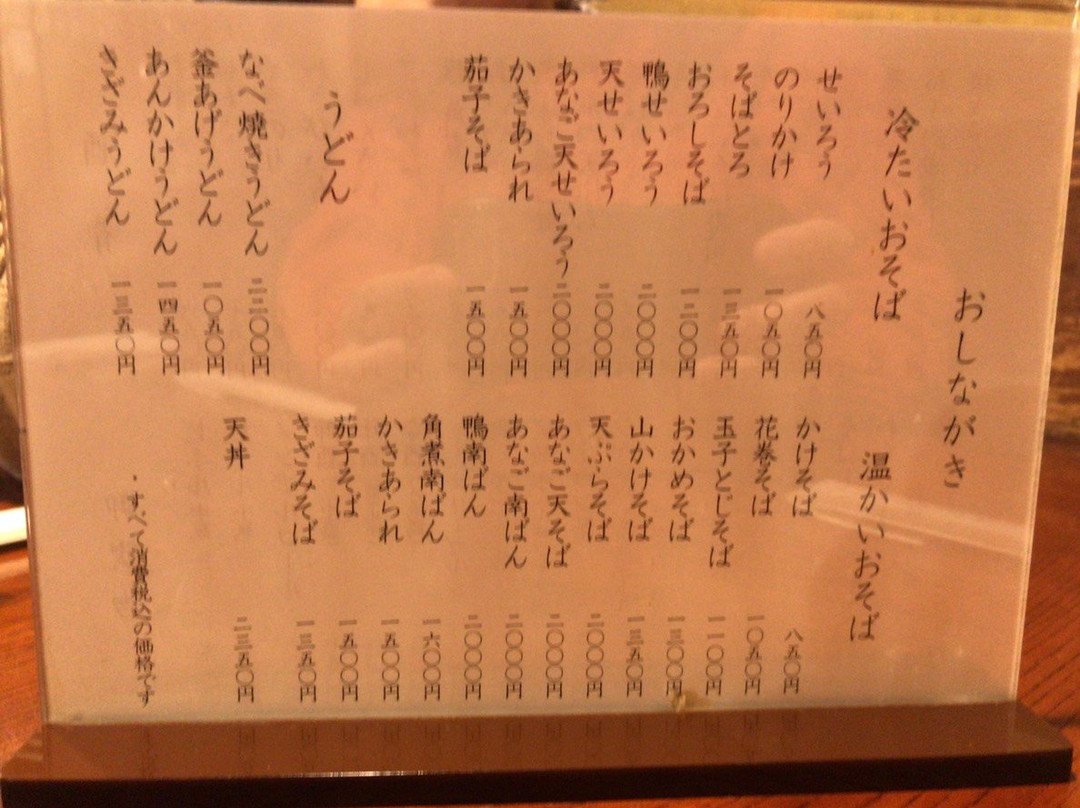 おしながき
冷たいおそば
せいろう 八五〇円
のりかけ 一〇五〇円
そばとろ 一三五〇円
おろしそば 一二〇〇円
鴨せいろう 二〇〇〇円
天せいろう 二〇〇〇円
あなご天せいろう 二〇〇〇円
かきあられ 一五〇〇円
茄子そば 一五〇〇円
うどん
なべ焼きうどん 二二〇〇円
釜あげうどん 一〇五〇円
あんかけうどん 一四五〇円
きざみうどん 一三五〇円
温かいおそば
かけそば 八五〇円
花巻そば 一〇五〇円
玉子とじそば 一一〇〇円
おかめそば 一三〇〇円
山かけそば 一三五〇円
天ぷらそば 二〇〇〇円
あなご天そば 二〇〇〇円
あなご南ばん 二〇〇〇円
鴨南ばん 二〇〇〇円
角煮南ばん 一六〇〇円
かきあられ 一五〇〇円
茄子そば 一五〇〇円
きざみそば 一三五〇円
天丼 二三五〇円
・すべて消費税込の価格です